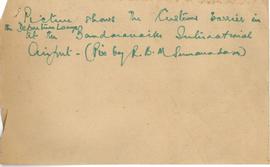 Picture shows the Customs barrier in
the Departure Lounge
at the Bandaranaike International
Airport - (Pix by R. B. M